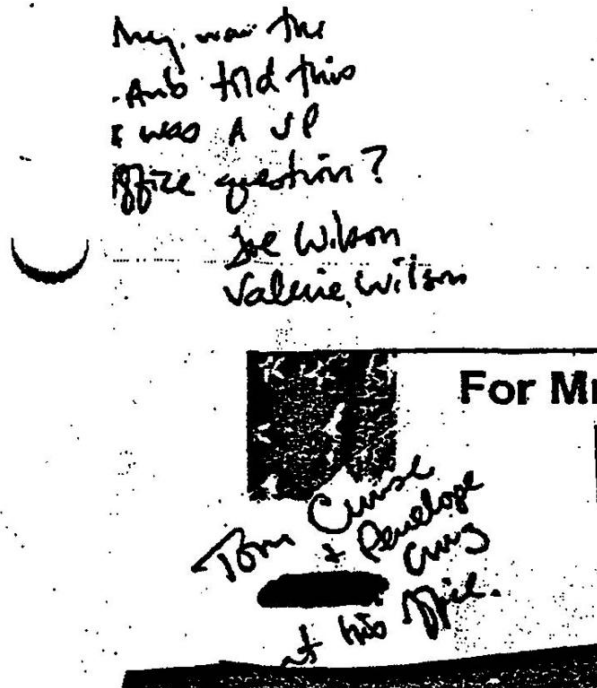 why was the
Amb told this
was A VP
office question?
Joe Wilson
Valerie Wilson
For Mr
Tom Cruise
+ Penelope
Cruz
at his office.